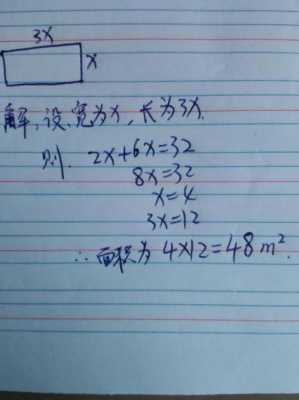 3x
x
解,设宽为x,长为3x.
则. 2x+6x=32
8x=32
x=4
3x=12
∴面积为 4×12=48m².